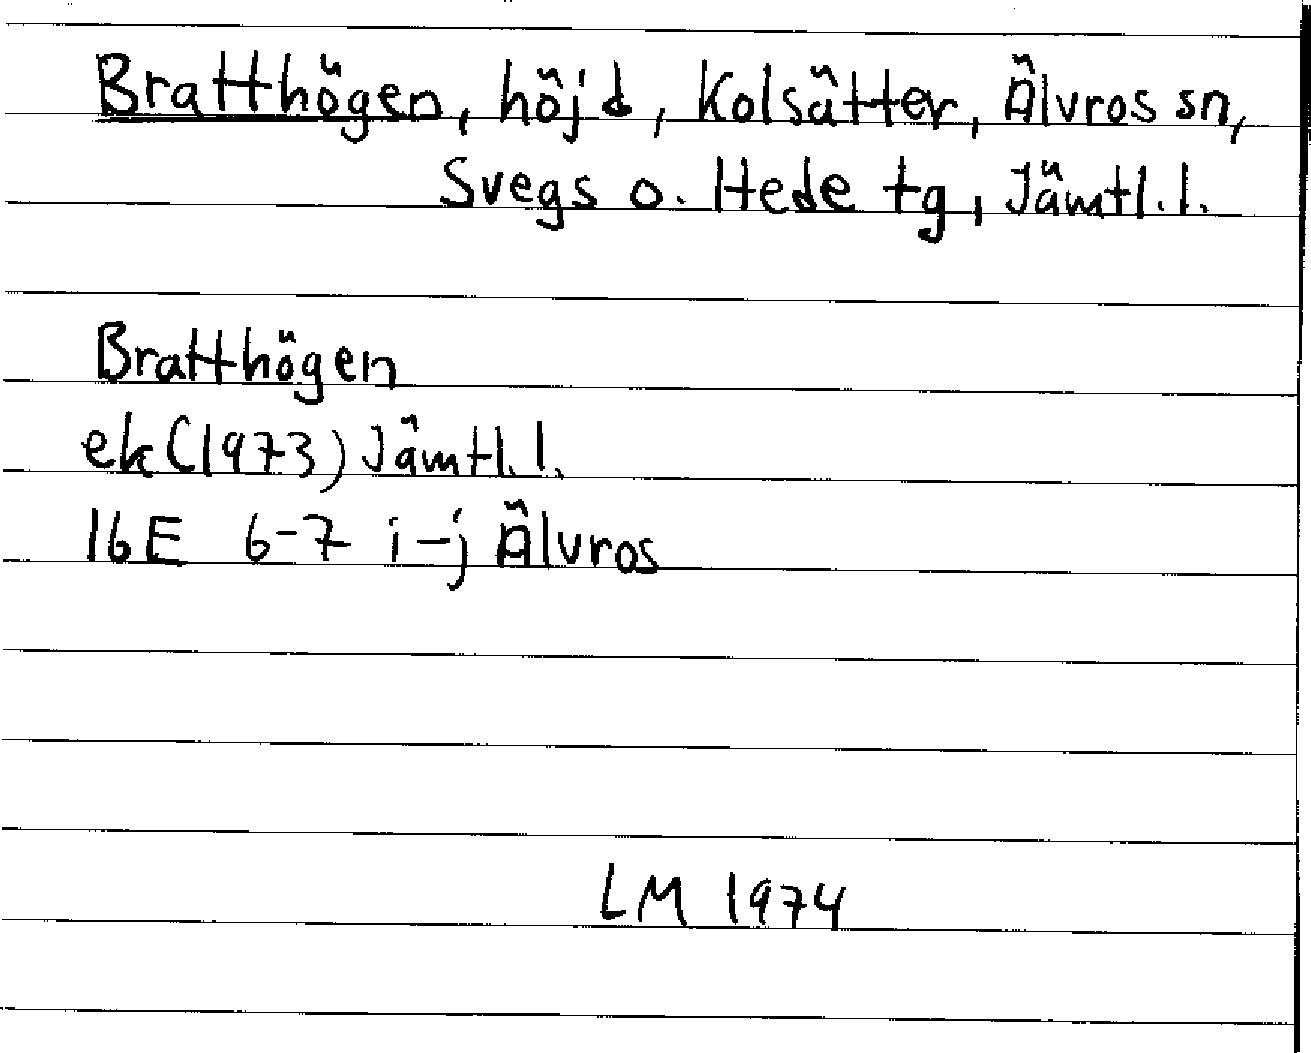 Bratthögen, höjd, Kolsätter, Älvros sn,
Svegs o. Hede tg, Jämtl. l.
Bratthögen
ek (1973) Jämtl. l.
16E 6-7 i-j Älvros
LM 1974